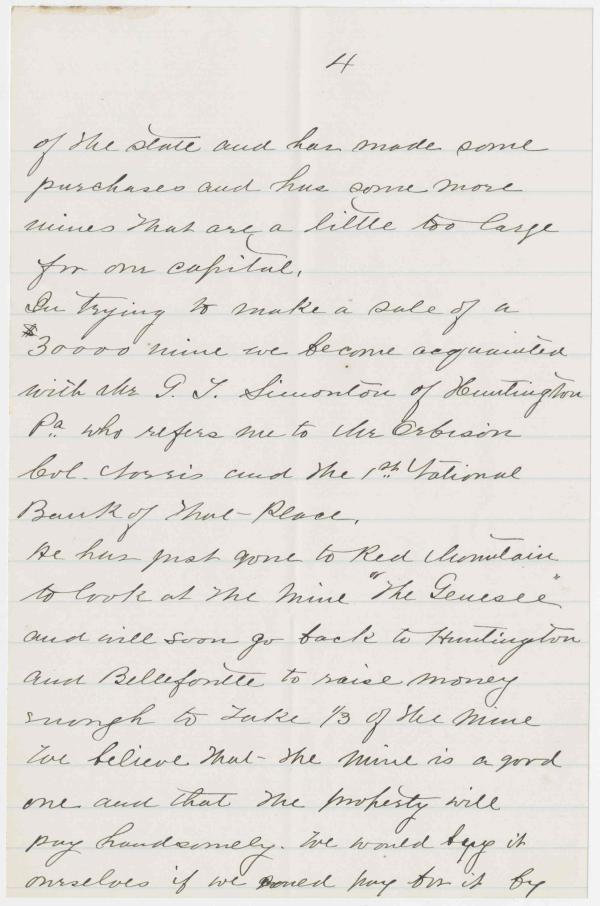 4
of the state and has made some
purchases and has some more
mines that are a little too large
for our capital.
In trying to make a sale of a
$30000 mine we become acquainted
with Mr G. T. Simonton of Huntington
Pa. who refers me to Mr Orbison
Col. Norris and the 1st National
Bank of that Place.
He has just gone to Red Mountain
to look at the Mine "The Genesee"
and will soon go back to Huntington
and Bellefontte to raise money
enough to take 1/3 of the Mine
We believe that the Mine is a good
one and that the property will
pay handsomely. We would buy it
ourselves if we could pay for it by